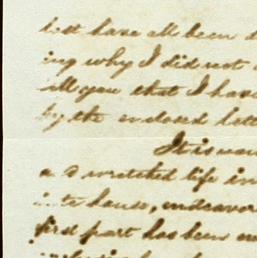 have all been
ing why I did not
you that I have
by the enclosed
It is now
a wretched life in
house, endeavor
first part has been